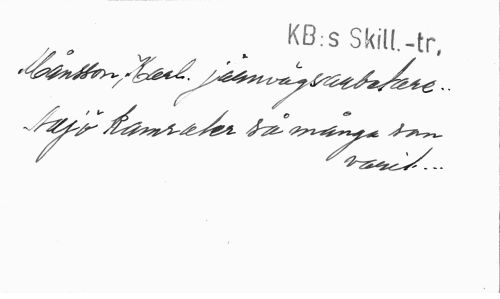 KB:s Skill.-tr.
Månsson, Karl. järnvägsarbetare..
Adjö kamrater så många som
varit...